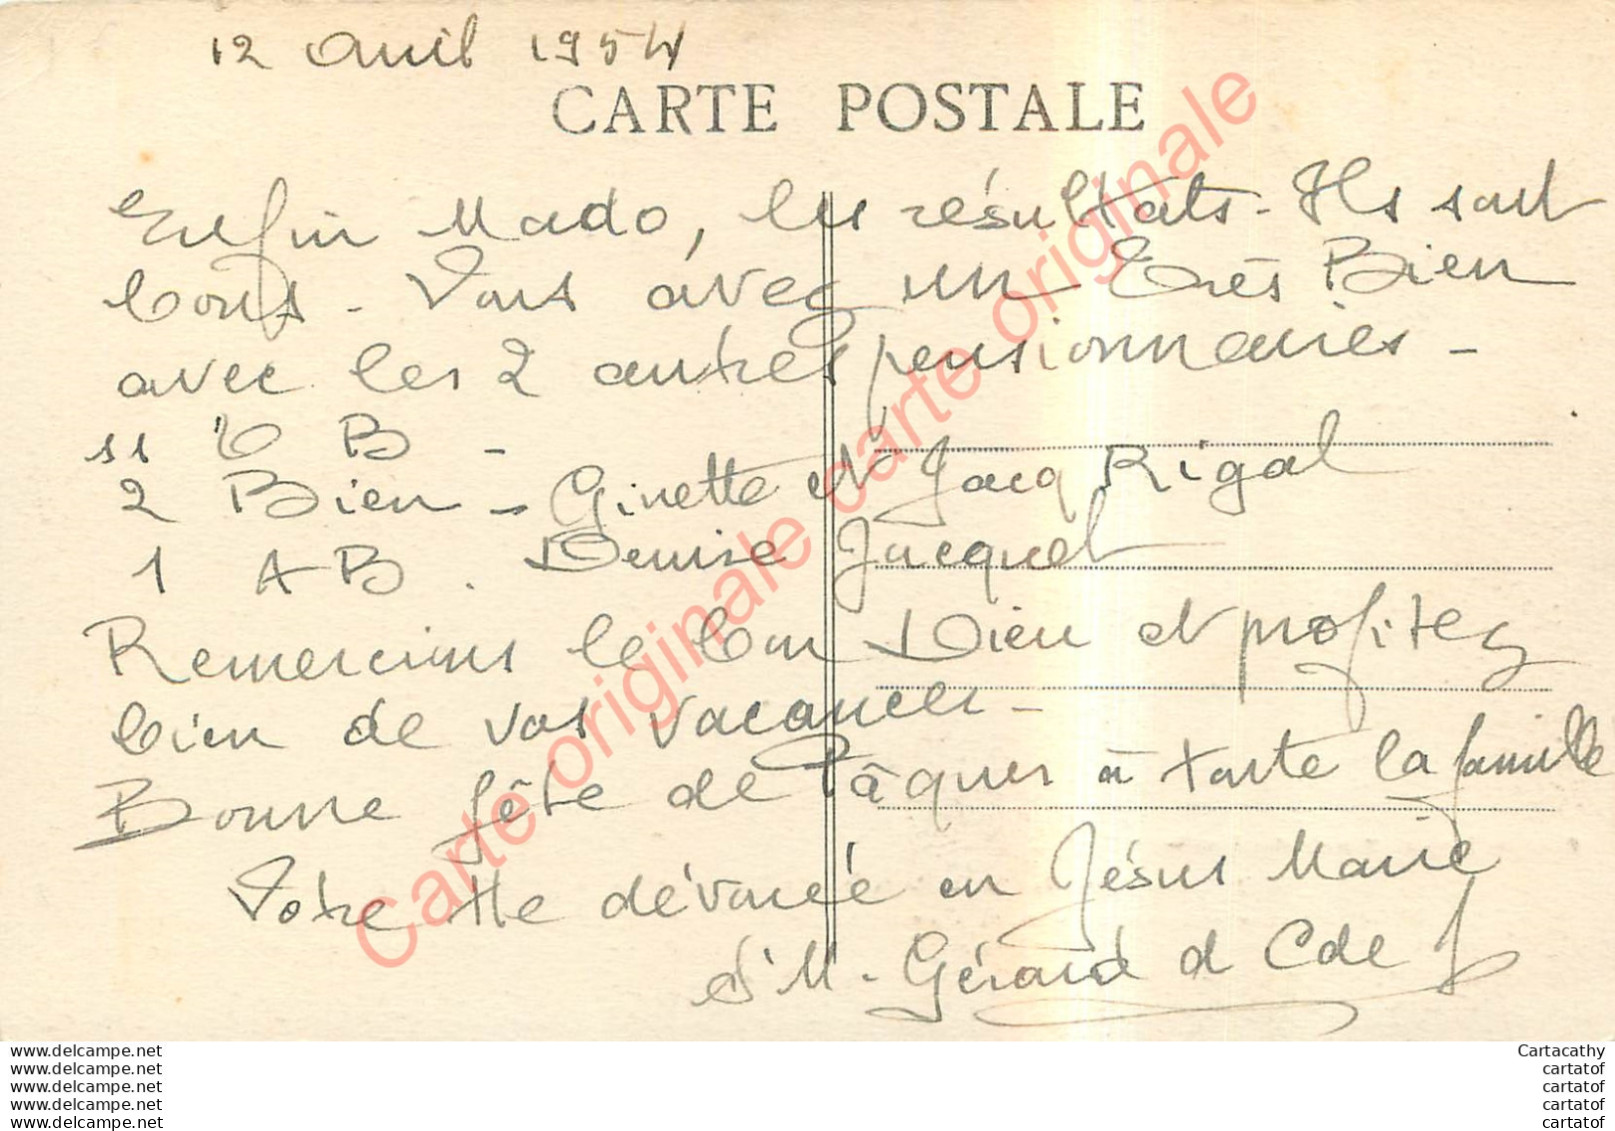 12 Avril 1954
CARTE POSTALE
Enfin Mado, les résultats. Ils sont
bons. Vous avez un Très Bien
avec les 2 autres pensionnaires -
11 T B -
2 Bien - Ginette et Jacq Rigal
1 AB. Denise Jacquet
Remercions le bon Dieu et profitez
bien de vos vacances -
Bonne fête de Pâques à toute la famille
Votre tte dévouée en Jésus Marie
S' M. Gérard d Cde J
Carte originale carte originale carte originale
www.delcampe.net
www.delcampe.net
www.delcampe.net
www.delcampe.net
www.delcampe.net
Cartacathy
cartatof
cartatof
cartatof
cartatof